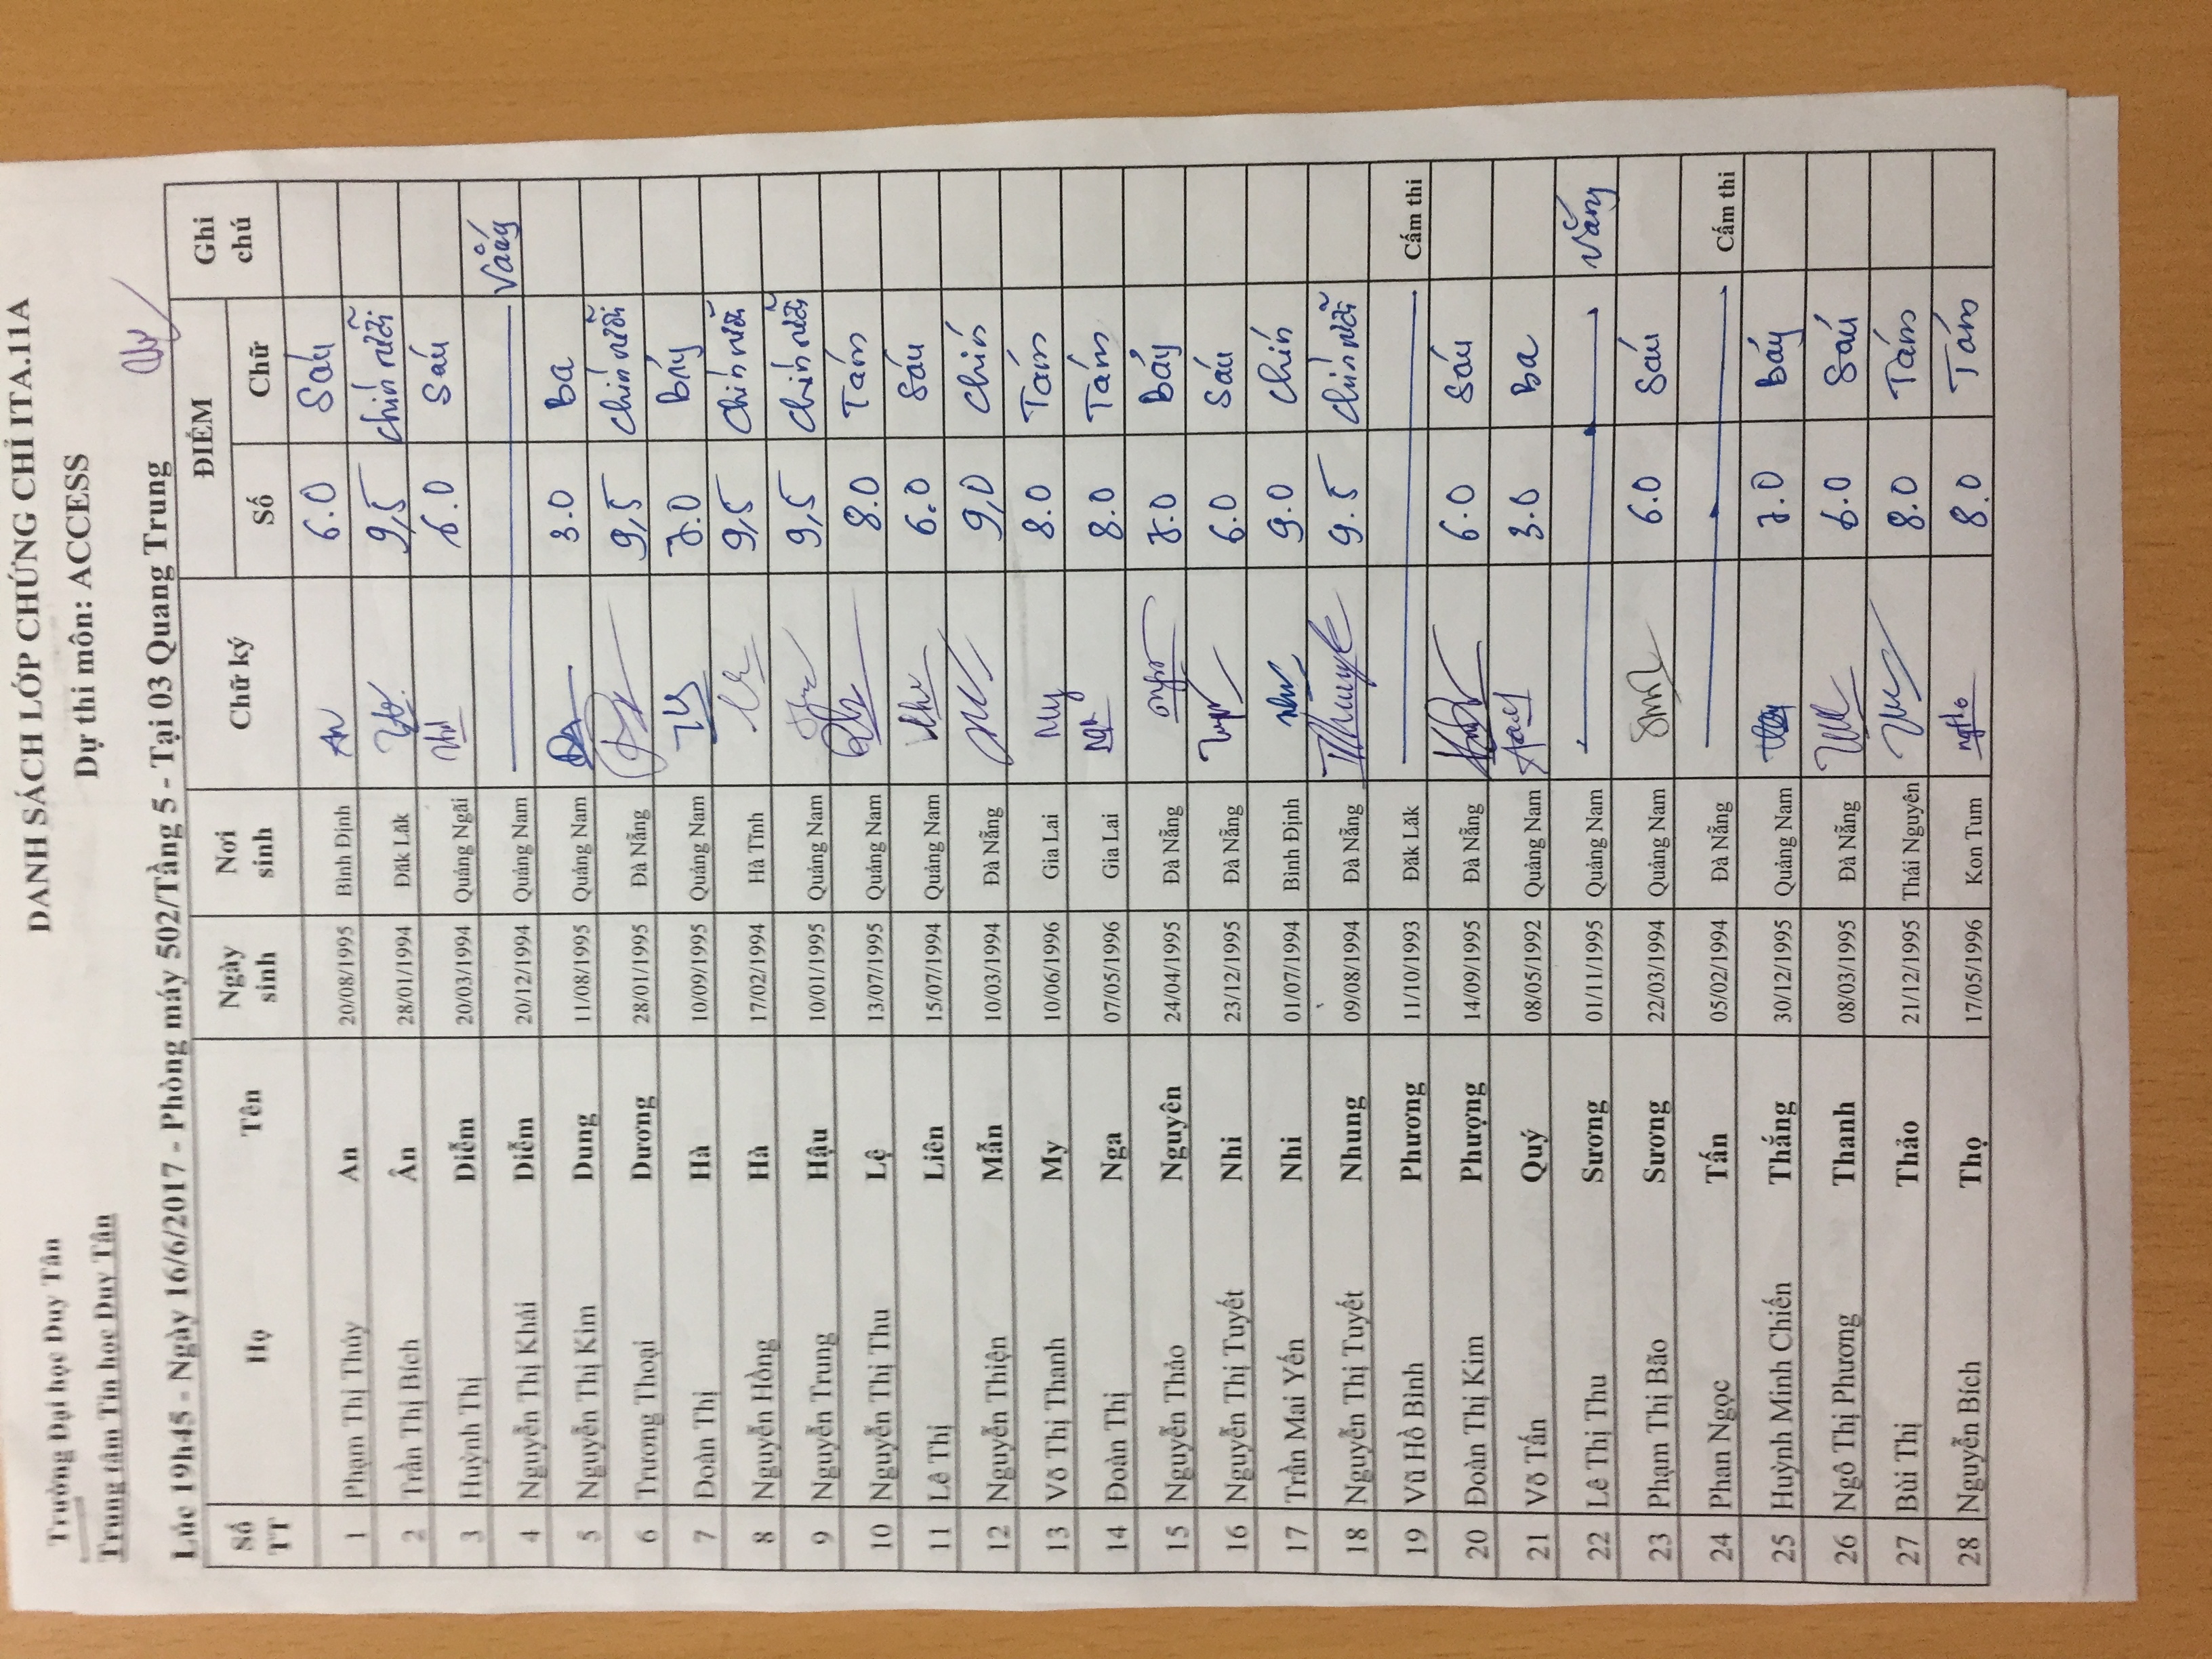 Trường Đại học Duy Tân
Trung tâm Tin học Duy Tân
DANH SÁCH LỚP CHỨNG CHỈ ITA.11A
Dự thi môn: ACCESS
Lúc 19h45 - Ngày 16/6/2017 - Phòng máy 502/Tầng 5 - Tại 03 Quang Trung
Số TT Họ Tên Ngày sinh Nơi sinh Chữ ký ĐIỂM Số Chữ Ghi chú
1 Phạm Thị Thúy An 20/08/1995 Bình Định An 6.0 Sáu
2 Trần Thị Bích Ân 28/01/1994 Đăk Lăk 9,5 chín rưỡi
3 Huỳnh Thị Diễm 20/03/1994 Quảng Ngãi 6.0 Sáu
4 Nguyễn Thị Khải Diễm 20/12/1994 Quảng Nam Vắng
5 Nguyễn Thị Kim Dung 11/08/1995 Quảng Nam 3.0 Ba
6 Trương Thoại Dương 28/01/1995 Đà Nẵng 9,5 chín rưỡi
7 Đoàn Thị Hà 10/09/1995 Quảng Nam 7.0 Bảy
8 Nguyễn Hồng Hà 17/02/1994 Hà Tĩnh 9,5 chín rưỡi
9 Nguyễn Trung Hậu 10/01/1995 Quảng Nam 9,5 chín rưỡi
10 Nguyễn Thị Thu Lệ 13/07/1995 Quảng Nam 8.0 Tám
11 Lê Thị Liên 15/07/1994 Quảng Nam 6.0 Sáu
12 Nguyễn Thiện Mẫn 10/03/1994 Đà Nẵng 9,0 chín
13 Võ Thị Thanh My 10/06/1996 Gia Lai My 8.0 Tám
14 Đoàn Thị Nga 07/05/1996 Gia Lai 8.0 Tám
15 Nguyễn Thảo Nguyên 24/04/1995 Đà Nẵng 7.0 Bảy
16 Nguyễn Thị Tuyết Nhi 23/12/1995 Đà Nẵng 6.0 Sáu
17 Trần Mai Yến Nhi 01/07/1994 Bình Định 9.0 Chín
18 Nguyễn Thị Tuyết Nhung 09/08/1994 Đà Nẵng 9.5 chín rưỡi
19 Vũ Hồ Bình Phương 11/10/1993 Đăk Lăk Cấm thi
20 Đoàn Thị Kim Phượng 14/09/1995 Đà Nẵng 6.0 Sáu
21 Võ Tấn Quý 08/05/1992 Quảng Nam 3.0 Ba
22 Lê Thị Thu Sương 01/11/1995 Quảng Nam Vắng
23 Phạm Thị Bão Sương 22/03/1994 Quảng Nam 6.0 Sáu
24 Phan Ngọc Tấn 05/02/1994 Đà Nẵng Cấm thi
25 Huỳnh Minh Chiến Thắng 30/12/1995 Quảng Nam 7.0 Bảy
26 Ngô Thị Phương Thanh 08/03/1995 Đà Nẵng 6.0 Sáu
27 Bùi Thị Thảo 21/12/1995 Thái Nguyên 8.0 Tám
28 Nguyễn Bích Thọ 17/05/1996 Kon Tum 8.0 Tám